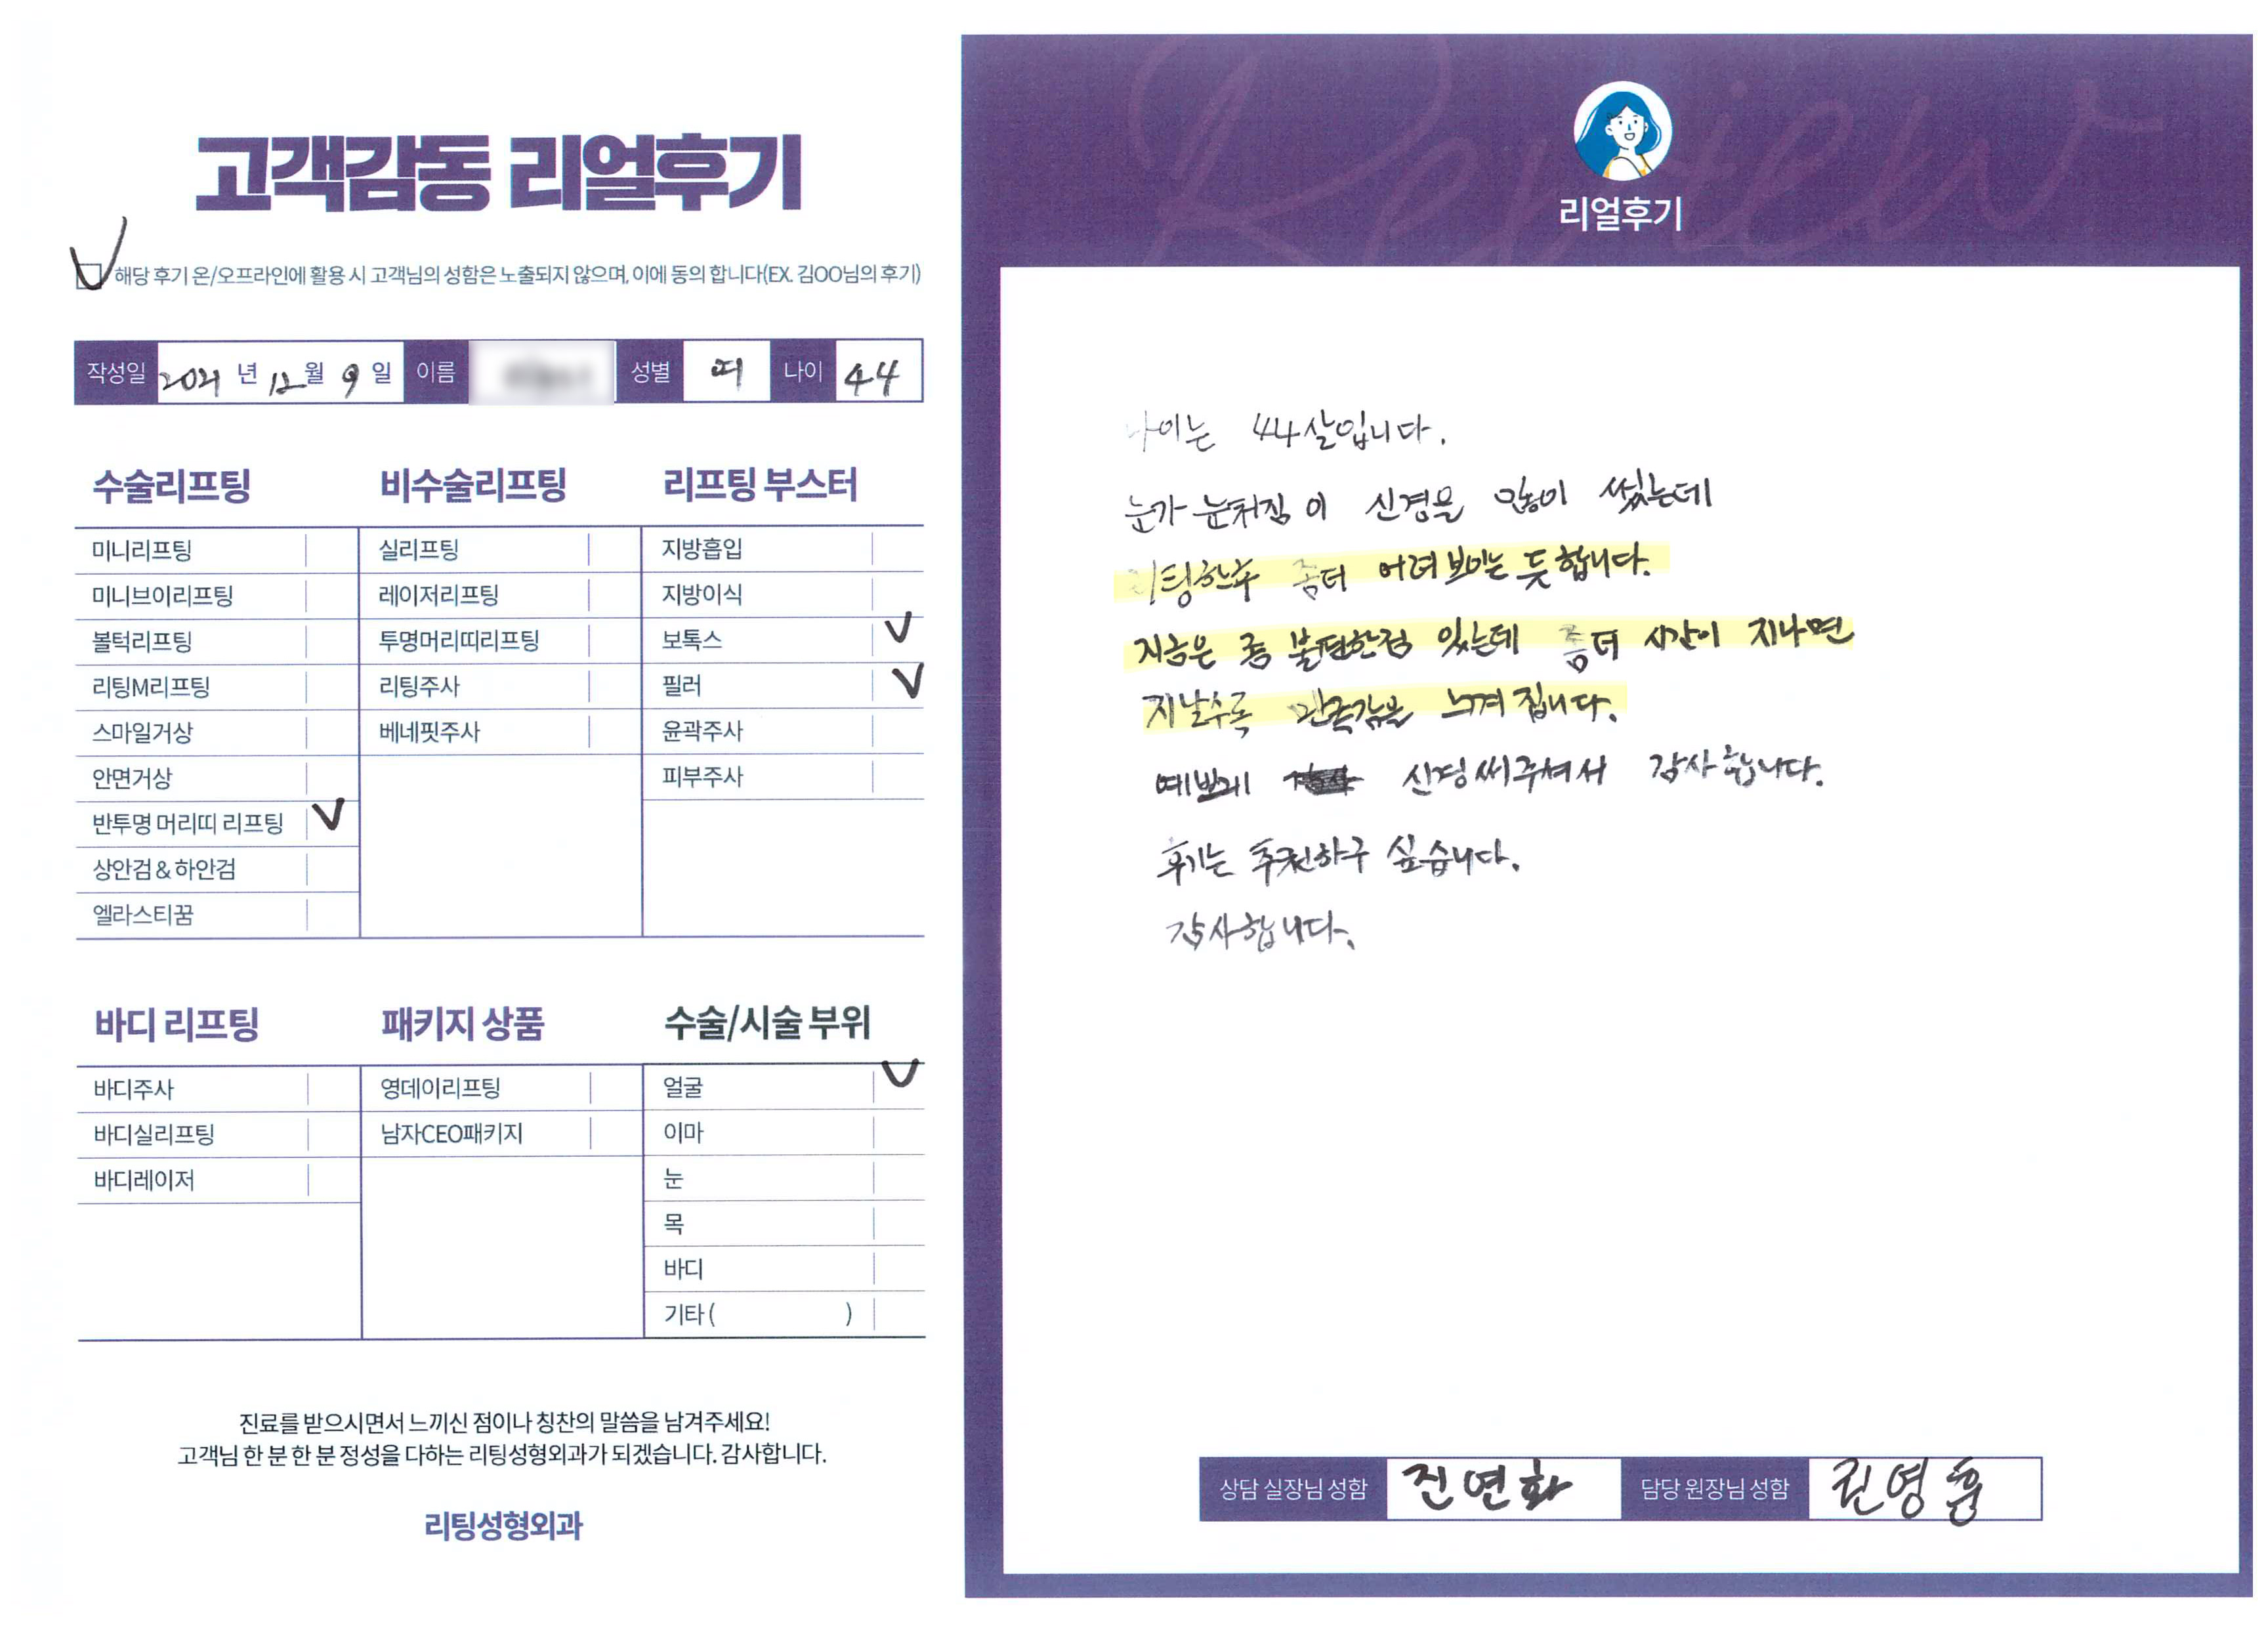 고객감동 리얼후기
해당 후기 온/오프라인에 활용 시 고객님의 성함은 노출되지 않으며, 이에 동의 합니다(EX. 김OO님의 후기)
작성일 2021 년 12 월 9 일 이름 성별 여 나이 44
수술리프팅
미니리프팅
미니브이리프팅
볼턱리프팅
리팅M리프팅
스마일거상
안면거상
반투명 머리띠 리프팅
상안검 & 하안검
엘라스티꿈
비수술리프팅
실리프팅
레이저리프팅
투명머리띠리프팅
리팅주사
베네핏주사
리프팅 부스터
지방흡입
지방이식
보톡스
필러
윤곽주사
피부주사
바디 리프팅
바디주사
바디실리프팅
바디레이저
패키지 상품
영데이리프팅
남자CEO패키지
수술/시술 부위
얼굴
이마
눈
목
바디
기타 ( )
진료를 받으시면서 느끼신 점이나 칭찬의 말씀을 남겨주세요!
고객님 한 분 한 분 정성을 다하는 리팅성형외과가 되겠습니다. 감사합니다.
리팅성형외과
Review
리얼후기
나이는 44살입니다.
눈가 눈처짐 이 신경을 많이 썼는데
리팅한후 좀더 어려보이는 듯합니다.
지금은 좀 불편한점 있는데 좀더 시간이 지나면
지날수록 만족감을 느껴집니다.
예쁘게 신경써주셔서 감사합니다.
후기는 추천하구 싶습니다.
감사합니다.
상담 실장님 성함 진연화 담당 원장님 성함 영훈